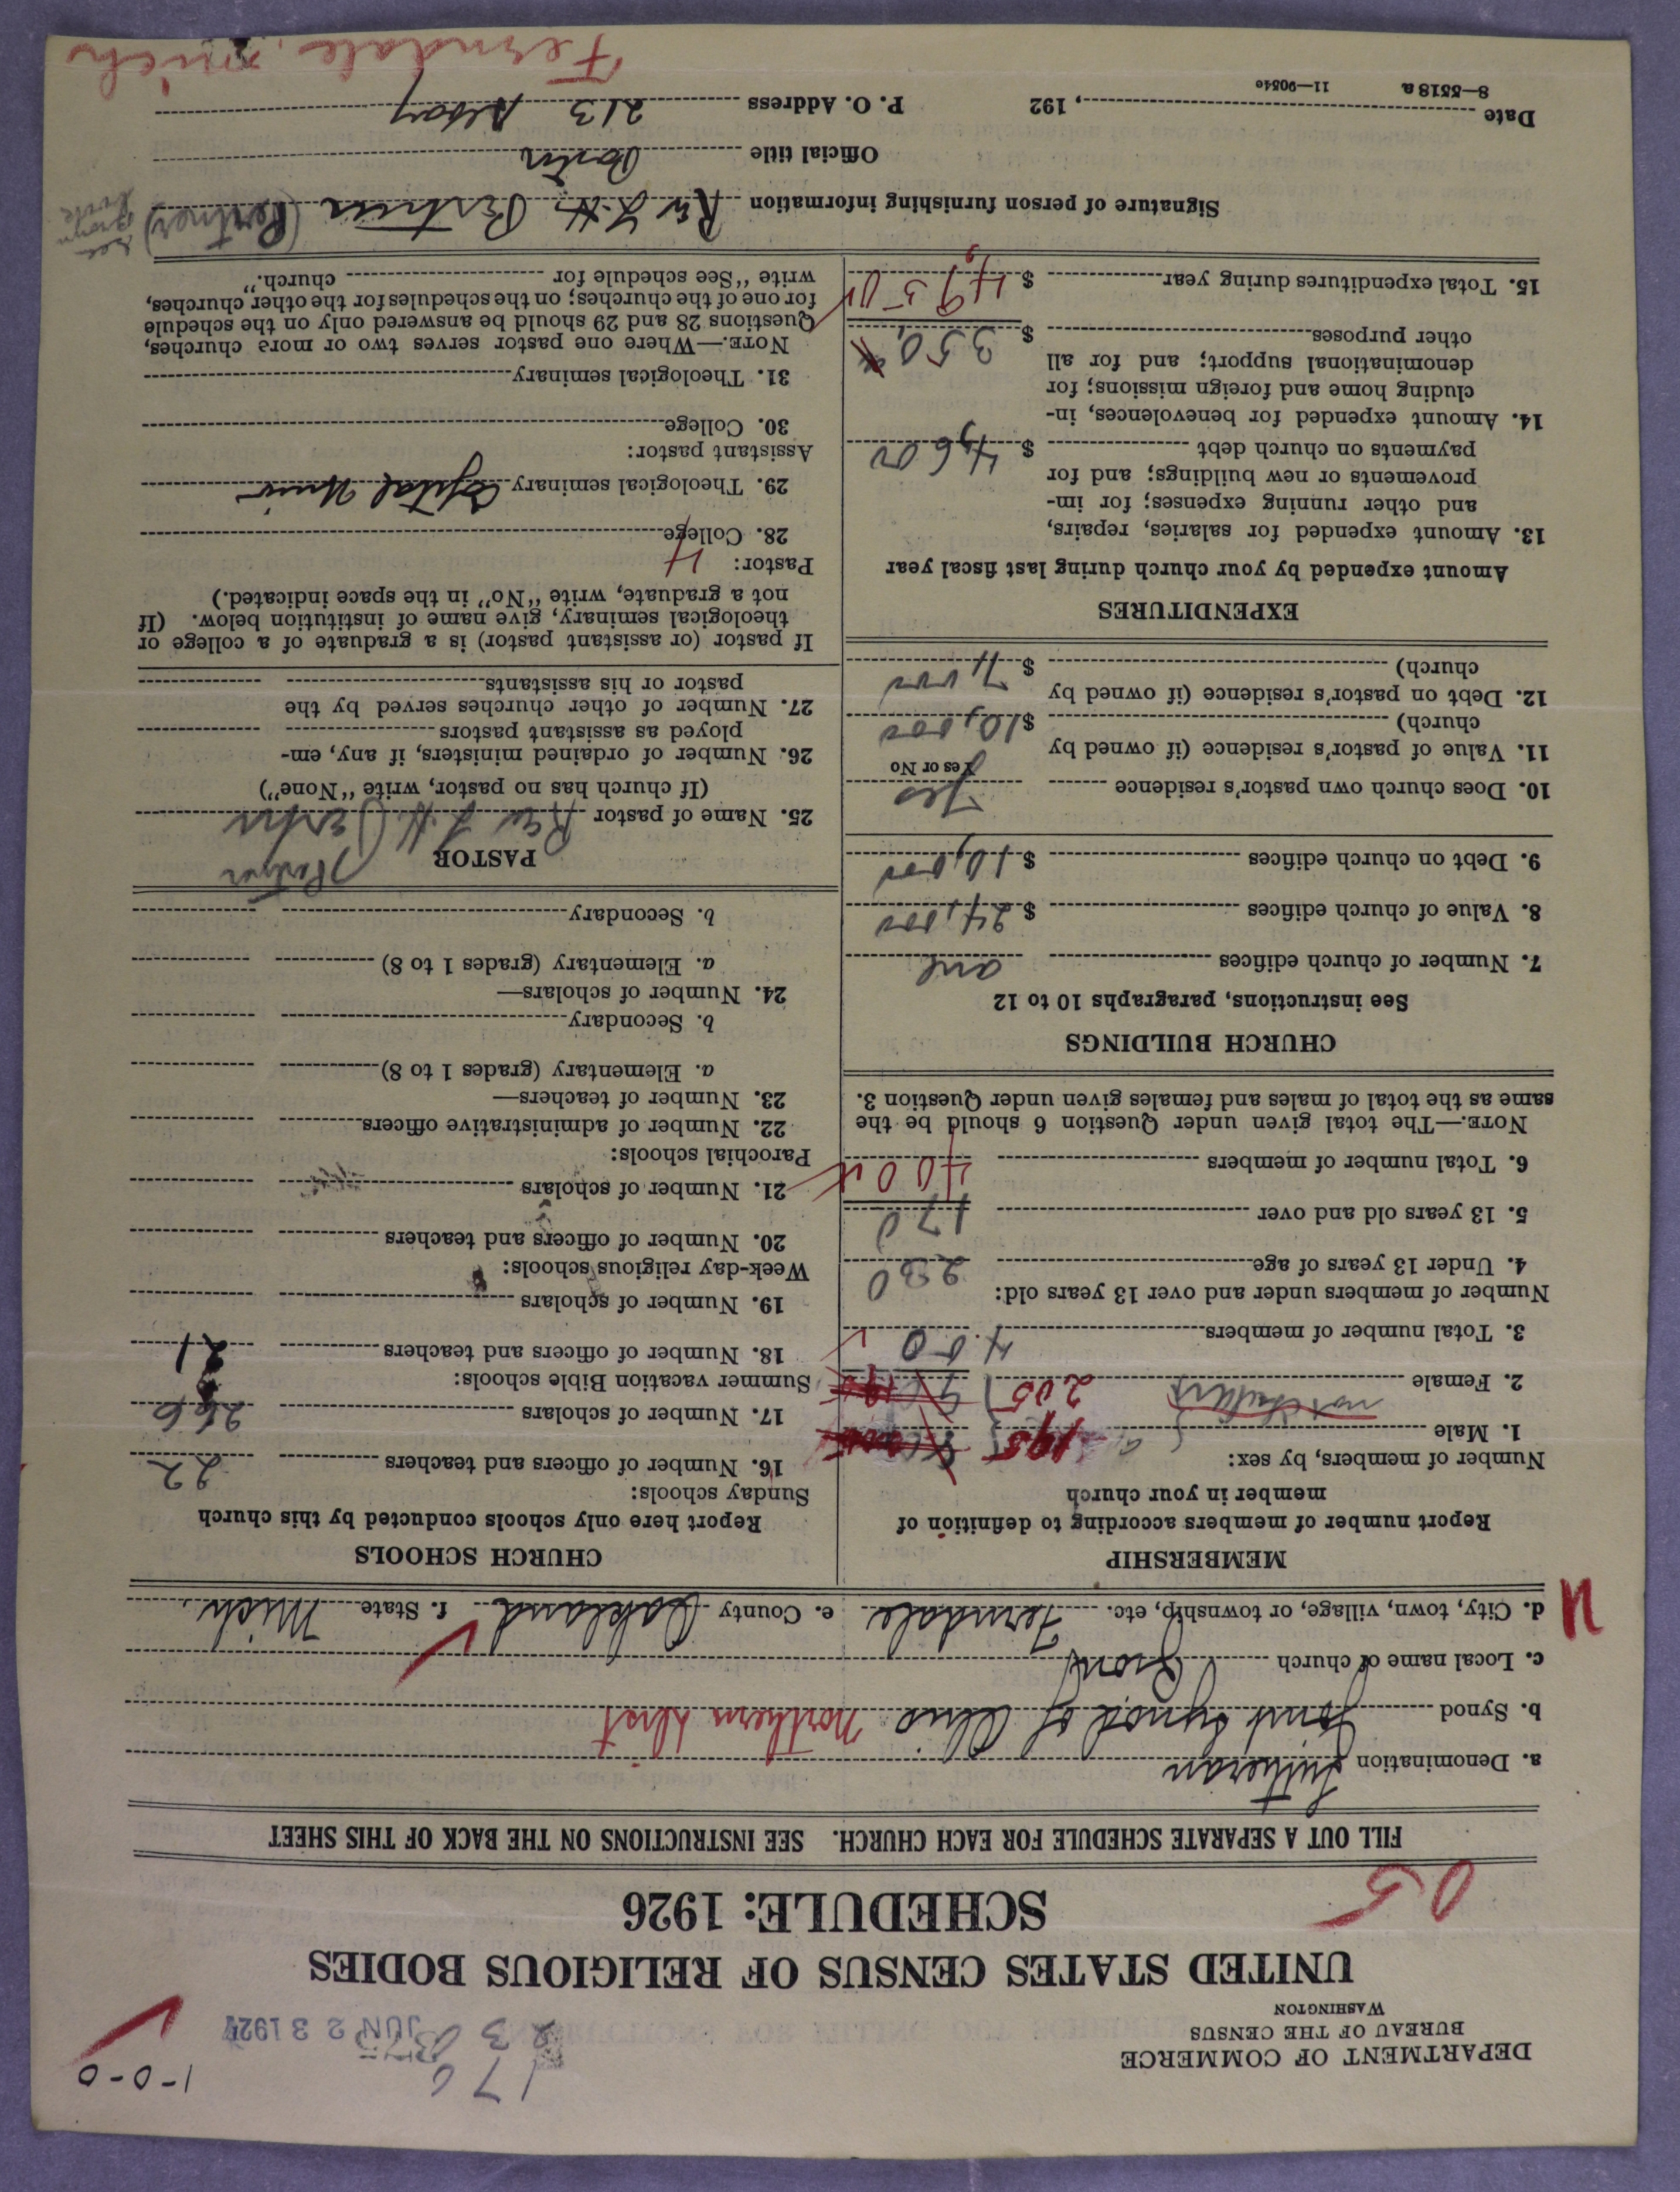 1-0-0
176
230
JUN 23 1927
DEPARTMENT OF COMMERCE
BUREAU OF THE CENSUS
WASHINGTON
UNITED STATES CENSUS OF RELIGIOUS BODIES
SCHEDULE: 1926
05
FILL OUT A SEPARATE SCHEDULE FOR EACH CHURCH. SEE INSTRUCTIONS ON THE BACK OF THIS SHEET
a. Denomination Lutheran
b. Synod Joint Synod of Ohio Northern Dist
c. Local name of church
d. City, town, village, or township, etc. Ferndale e. County Oakland f. State Mich.
MEMBERSHIP
Report number of members according to definition of
member in your church
Number of members, by sex:
1. Male 195
2. Female 205
3. Total number of members 400
Number of members under and over 13 years old:
4. Under 13 years of age 230
5. 13 years old and over 170
6. Total number of members 400
NOTE.—The total given under Question 6 should be the
same as the total of males and females given under Question 3.
CHURCH BUILDINGS
See instructions, paragraphs 10 to 12
7. Number of church edifices one
8. Value of church edifices $ 24,000
9. Debt on church edifices $ 10,000
10. Does church own pastor's residence Yes
Yes or No
11. Value of pastor's residence (if owned by
church) $ 10,000
12. Debt on pastor's residence (if owned by
church) $ 7,000
EXPENDITURES
Amount expended by your church during last fiscal year
13. Amount expended for salaries, repairs,
and other running expenses; for im-
provements or new buildings; and for
payments on church debt $ 4,600
14. Amount expended for benevolences, in-
cluding home and foreign missions; for
denominational support; and for all
other purposes $ 350.
15. Total expenditures during year $ 4,950
CHURCH SCHOOLS
Report here only schools conducted by this church
Sunday schools:
16. Number of officers and teachers 22
17. Number of scholars 266
Summer vacation Bible schools:
18. Number of officers and teachers 21
19. Number of scholars
Week-day religious schools:
20. Number of officers and teachers
21. Number of scholars
Parochial schools:
22. Number of administrative officers
23. Number of teachers—
a. Elementary (grades 1 to 8)
b. Secondary
24. Number of scholars—
a. Elementary (grades 1 to 8)
b. Secondary
PASTOR
25. Name of pastor Rev
(If church has no pastor, write "None")
26. Number of ordained ministers, if any, em-
ployed as assistant pastors
27. Number of other churches served by the
pastor or his assistants
If pastor (or assistant pastor) is a graduate of a college or
theological seminary, give name of institution below. (If
not a graduate, write "No" in the space indicated.)
Pastor: 4
28. College
29. Theological seminary Capital Univ
Assistant pastor:
30. College
31. Theological seminary
NOTE.—Where one pastor serves two or more churches,
Questions 28 and 29 should be answered only on the schedule
for one of the churches; on the schedules for the other churches,
write "See schedule for church."
Signature of person furnishing information Rev (Pertner)
Official title Pastor
Date , 192 P. O. Address 213 Albany
8—5518 a 11—9054c
Ferndale, Mich